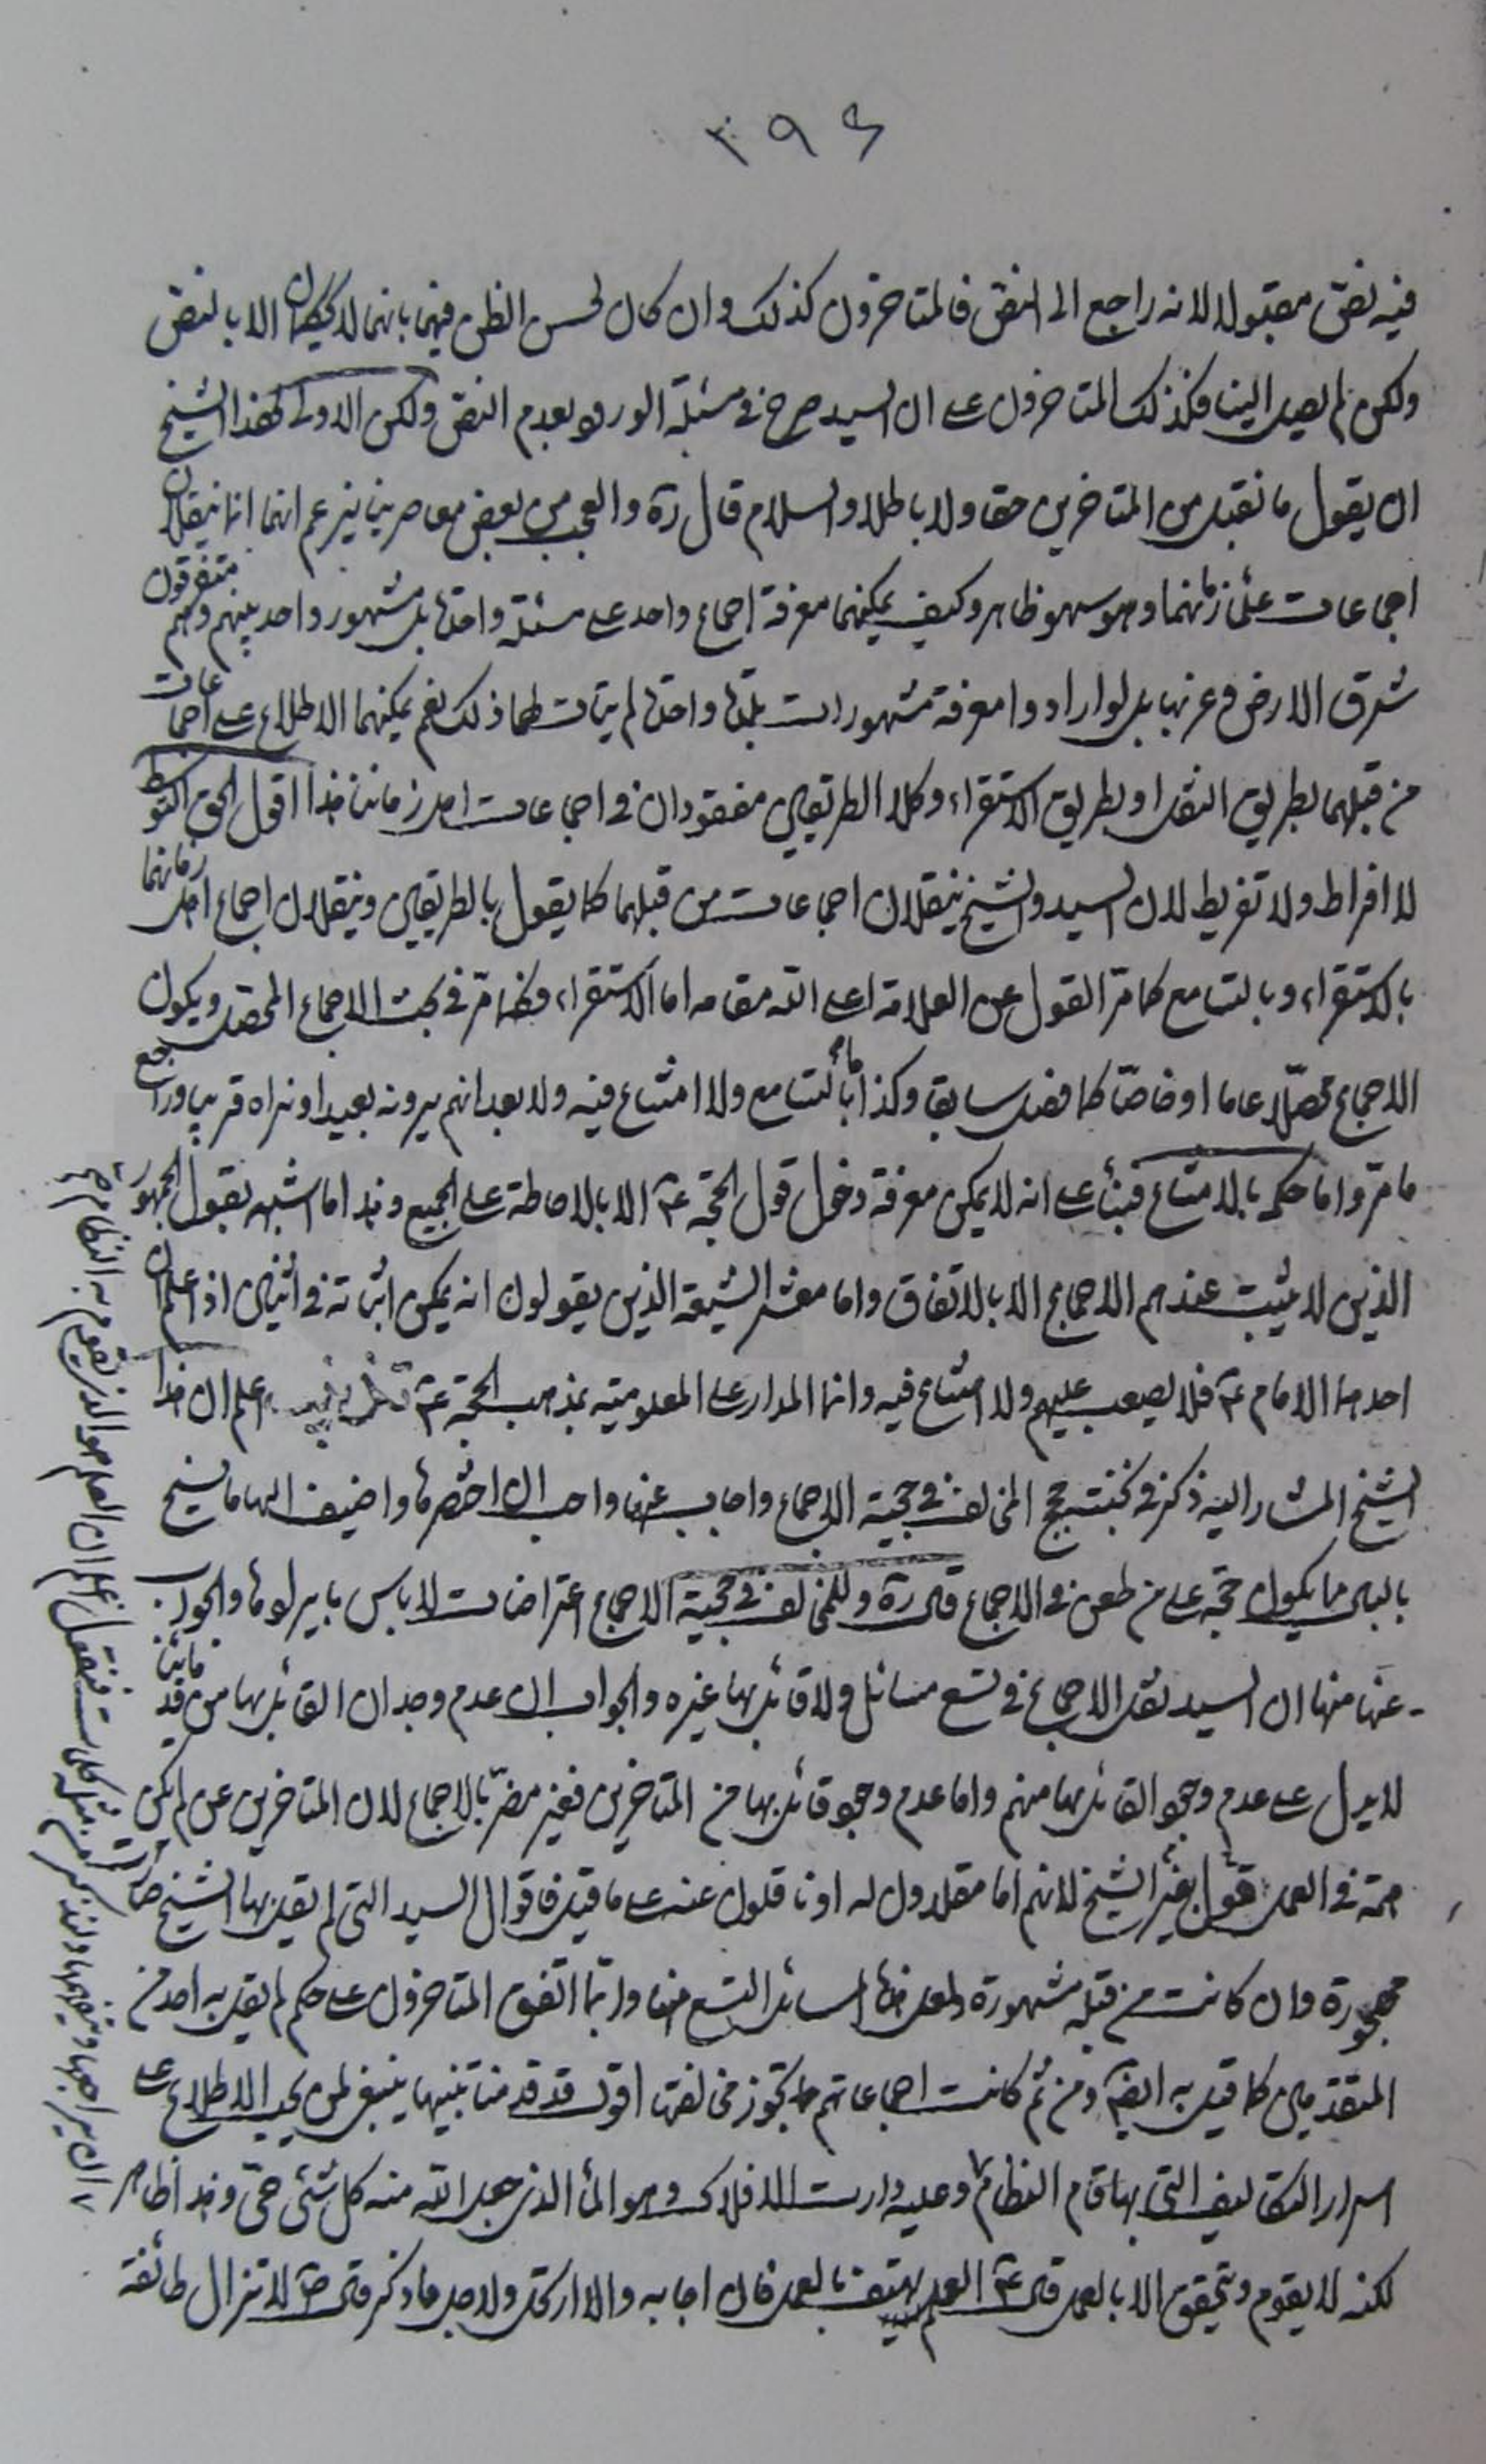 ٣٩٤
فيه نص مقبولا لانه راجع الى النص فالمتاخرون كذلك وان كان لحسن الظن فيهما بانهما لا يحكمان الا بالنص
ولكن لم يصل الينا فكذلك المتاخرون على ان السيد صرح في مسئلة الورد بعدم النص ولكن الاولى لهذا الشيخ
ان يقول ما نقبل من المتاخرين حقا ولا باطلا والسلام قال ره والعجب من بعض معاصرينا يزعم انهما انما ينقلان
اجماعات علماء زمانهما وهو سهو ظاهر وكيف يمكنهما معرفة اجماع واحد على مسئلة واحدة بل مشهور واحد بينهم وهم متفرقون
شرق الارض وغربها بل لو ارادوا معرفة مشهورات بلدة واحدة لم يتات لهما ذلك نعم يمكنهما الاطلاع على اجماعات
من قبلهما بطريق النقل او بطريق الاستقراء وكلا الطريقين مفقودان في اجماعات اهل زماننا هذا اقول الحق التوسط
لا افراط ولا تفريط لان السيد والشيخ ينقلان اجماعات من قبلهما كما يقول بالطريقين وينقلان اجماع اهل زمانهما
بالاستقراء وبالتسامع كما مر القول عن العلامة اعلى الله مقامه اما الاستقراء فكما مر في بحث الاجماع المحصل ويكون
الاجماع محصلا عاما او خاصا كما فصل سابقا وكذا بالتسامع ولا امتناع فيه ولا بعد انهم يرونه بعيدا ونراه قريبا وراجع
ما مر واما حكمه بالامتناع فبناء على انه لا يمكن معرفة دخول قول الحجة ع الا بالاحاطة على الجميع وهذا ما اشبه بقول الجمهور
الذين لا يثبت عندهم الاجماع الا بالاتفاق واما معشر الشيعة الذين يقولون انه يمكن اثباته في اثنين اذا علم ان
احدهما الامام ع فلا يصعب عليهم ولا امتناع فيه وانما المدار على المعلومية بمذهب الحجة ع اعلم ان هذا
الشيخ المشار اليه ذكر في حجج المخالف في حجية الاجماع واجاب عنها واحب ان اختصرها واضيف اليها ما يسنح
بالبال مما يكون حجة على من طعن في الاجماع قال ره وللمخالف في حجية الاجماع اعتراضات لا باس بايرادها والجواب
عنها منها ان السيد نقل الاجماع في تسع مسائل ولا قائل بها غيره والجواب ان عدم وجدان القائل بها من قدمائنا
لا يدل على عدم وجود القائل بها منهم واما عدم وجود قائل بها من المتاخرين فغير مضر بالاجماع لان المتاخرين عن لم يكن
همة في العمل بقول غير الشيخ لانهم اما مقلدون له او ناقلون عنه على ما قيل فاقوال السيد التي لم يقل بها الشيخ صارت
مهجورة وان كانت من قبله مشهورة ولعل هذه المسائل التسع منها وربما اتفق المتاخرون على حكم لم يقل به احد من
المتقدمين كما قيل به ايضا ومن ثم كانت اجماعاتهم تجوز مخالفتها اقول قد قدمنا تنبيها ينبغي لمن يحب الاطلاع على
اسرار التكاليف التي بها قام النظام وعليه دارت الافلاك وهو الماء الذي جعل الله منه كل شئ حي وهذا ظاهر
لكنه لا يقوم ويتحقق الا بالعمل قال ع العلم يهتف بالعمل فان اجابه والا ارتحل ولاجل ما ذكر قال ص لا تزال طائفة